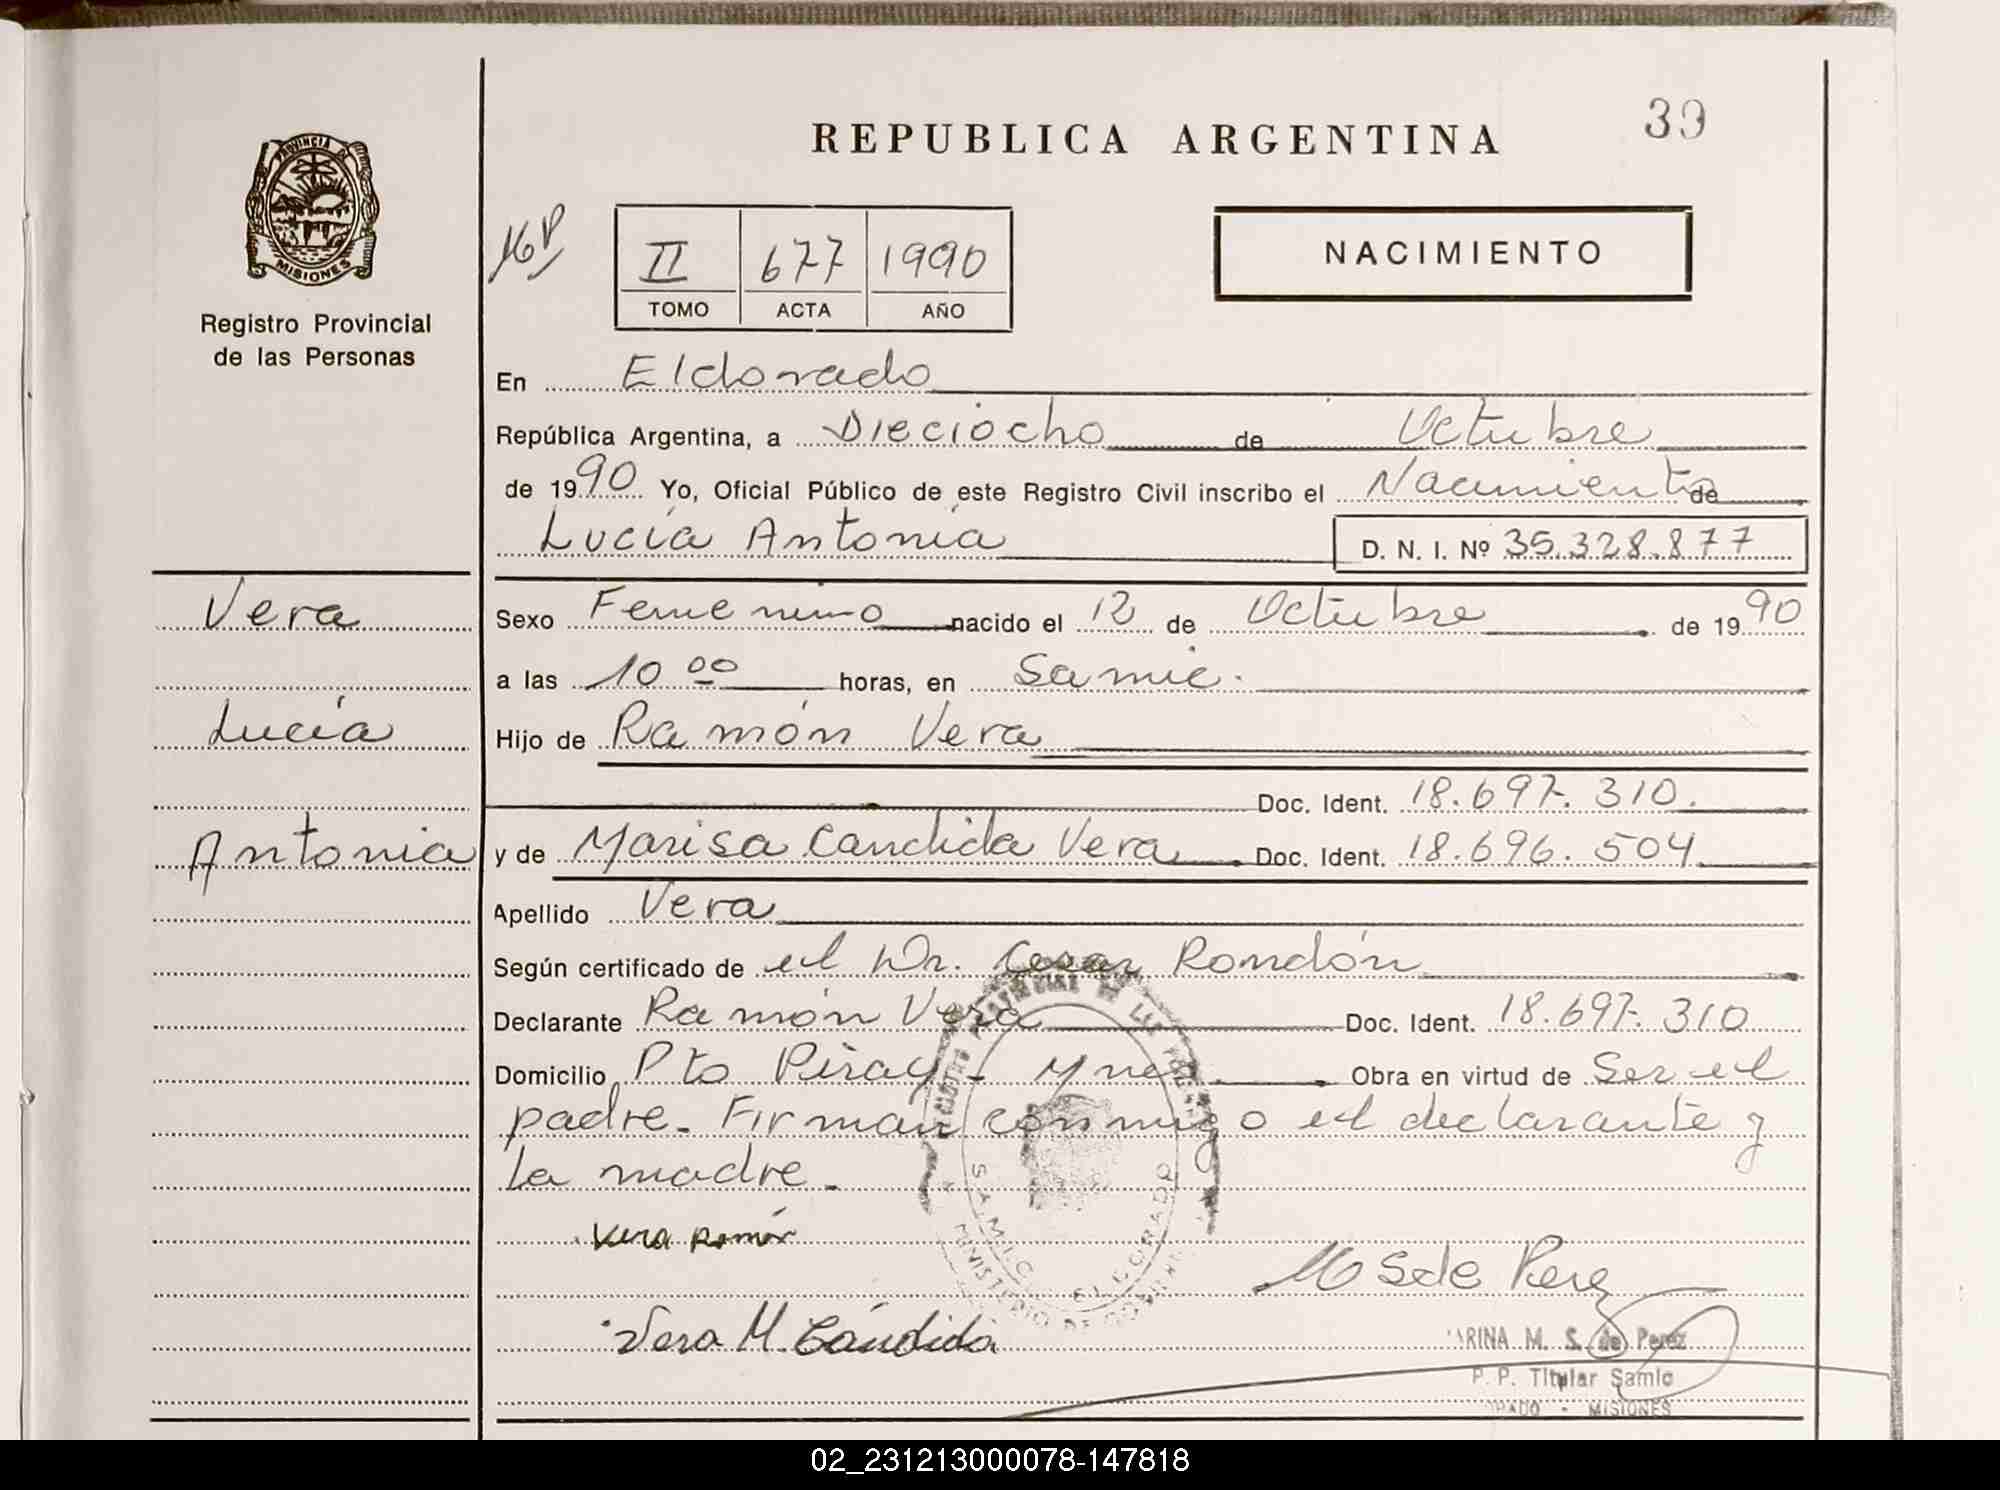 39
REPUBLICA ARGENTINA
PROVINCIA DE
MISIONES
Registro Provincial
de las Personas
II 677 1990
TOMO ACTA AÑO
NACIMIENTO
En Eldorado
República Argentina, a Dieciocho de Octubre
de 1990 Yo, Oficial Público de este Registro Civil inscribo el Nacimiento de
Lucía Antonia D. N. I. Nº 35.328.877
Vera
Lucía
Antonia
Sexo Femenino nacido el 12 de Octubre de 1990
a las 10 00 horas, en Samic.
Hijo de Ramón Vera
Doc. Ident. 18.697.310.
y de Marisa Candida Vera Doc. Ident. 18.696.504
Apellido Vera
Según certificado de el Dr. Cesar Rondón
Declarante Ramón Vera Doc. Ident. 18.697.310
Domicilio Pto Piray - Mnes. Obra en virtud de Ser el
padre. Firman conmigo el declarante y
la madre.
Vera Ramón
M S de Perez
Vera M. Cándida
S.A.M.I.C. ELDORADO
MINISTERIO DE
ARINA M. S. de Perez
P. P. Titular Samic
MISIONES
02_231213000078-147818